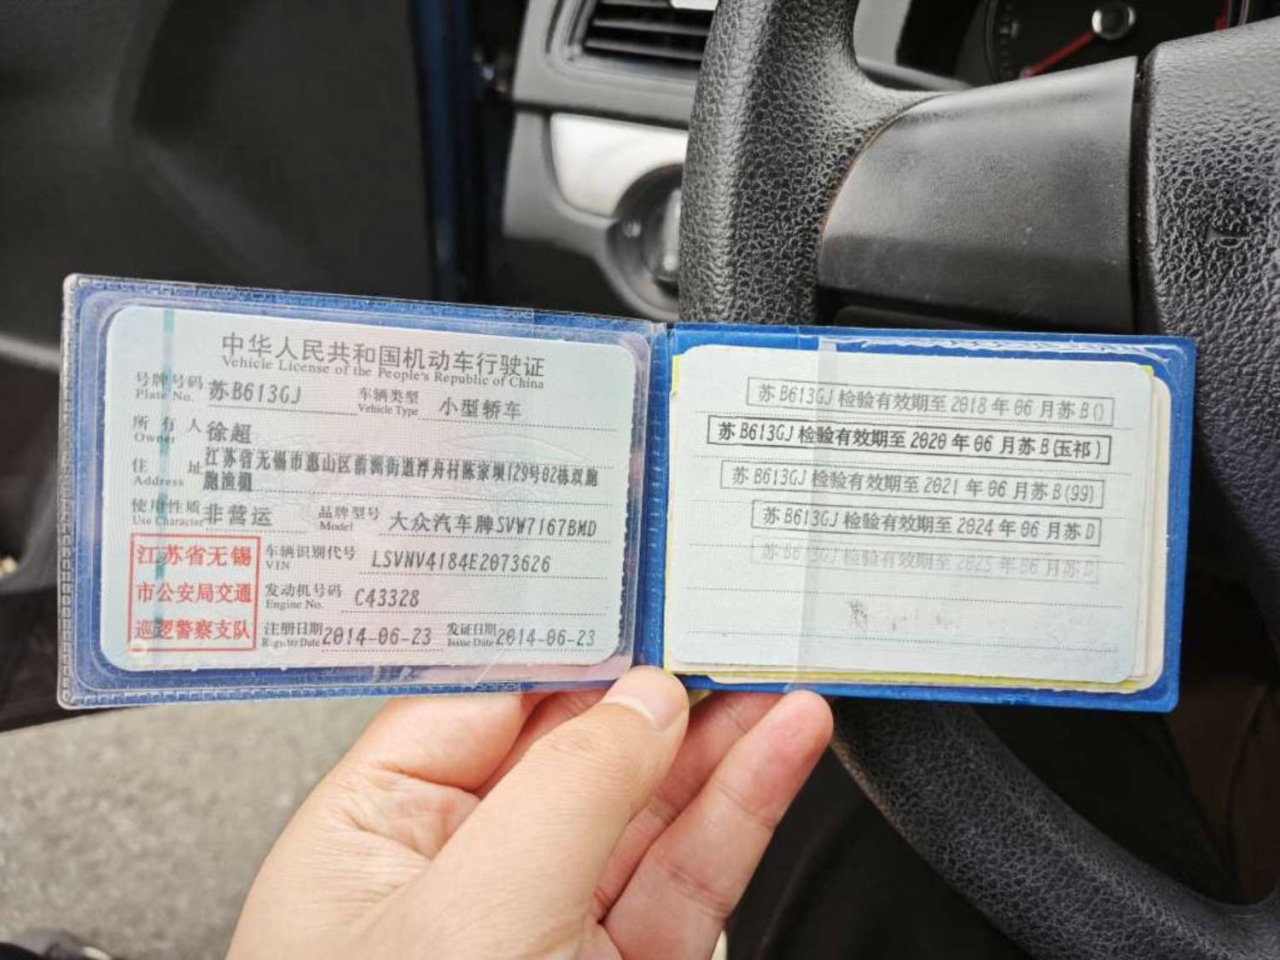 中华人民共和国机动车行驶证
Vehicle License of the People's Republic of China
号牌号码 苏B613GJ 车辆类型 小型轿车
Plate No. Vehicle Type
所有人 徐超
Owner
住址 江苏省无锡市惠山区前洲街道浮舟村陈家坝129号02栋双胞
Address 胞渔镇
使用性质 非营运 品牌型号 大众汽车牌SVW7167BMD
Use Character Model
江苏省无锡
市公安局交通
巡逻警察支队
车辆识别代号 LSVNV4184E2073626
VIN
发动机号码 C43328
Engine No.
注册日期 2014-06-23 发证日期 2014-06-23
Register Date Issue Date
苏B613GJ检验有效期至2018年06月苏B()
苏B613GJ检验有效期至2020年06月苏B(玉祁)
苏B613GJ检验有效期至2021年06月苏B(99)
苏B613GJ检验有效期至2024年06月苏D
苏B613GJ检验有效期至2025年06月苏D